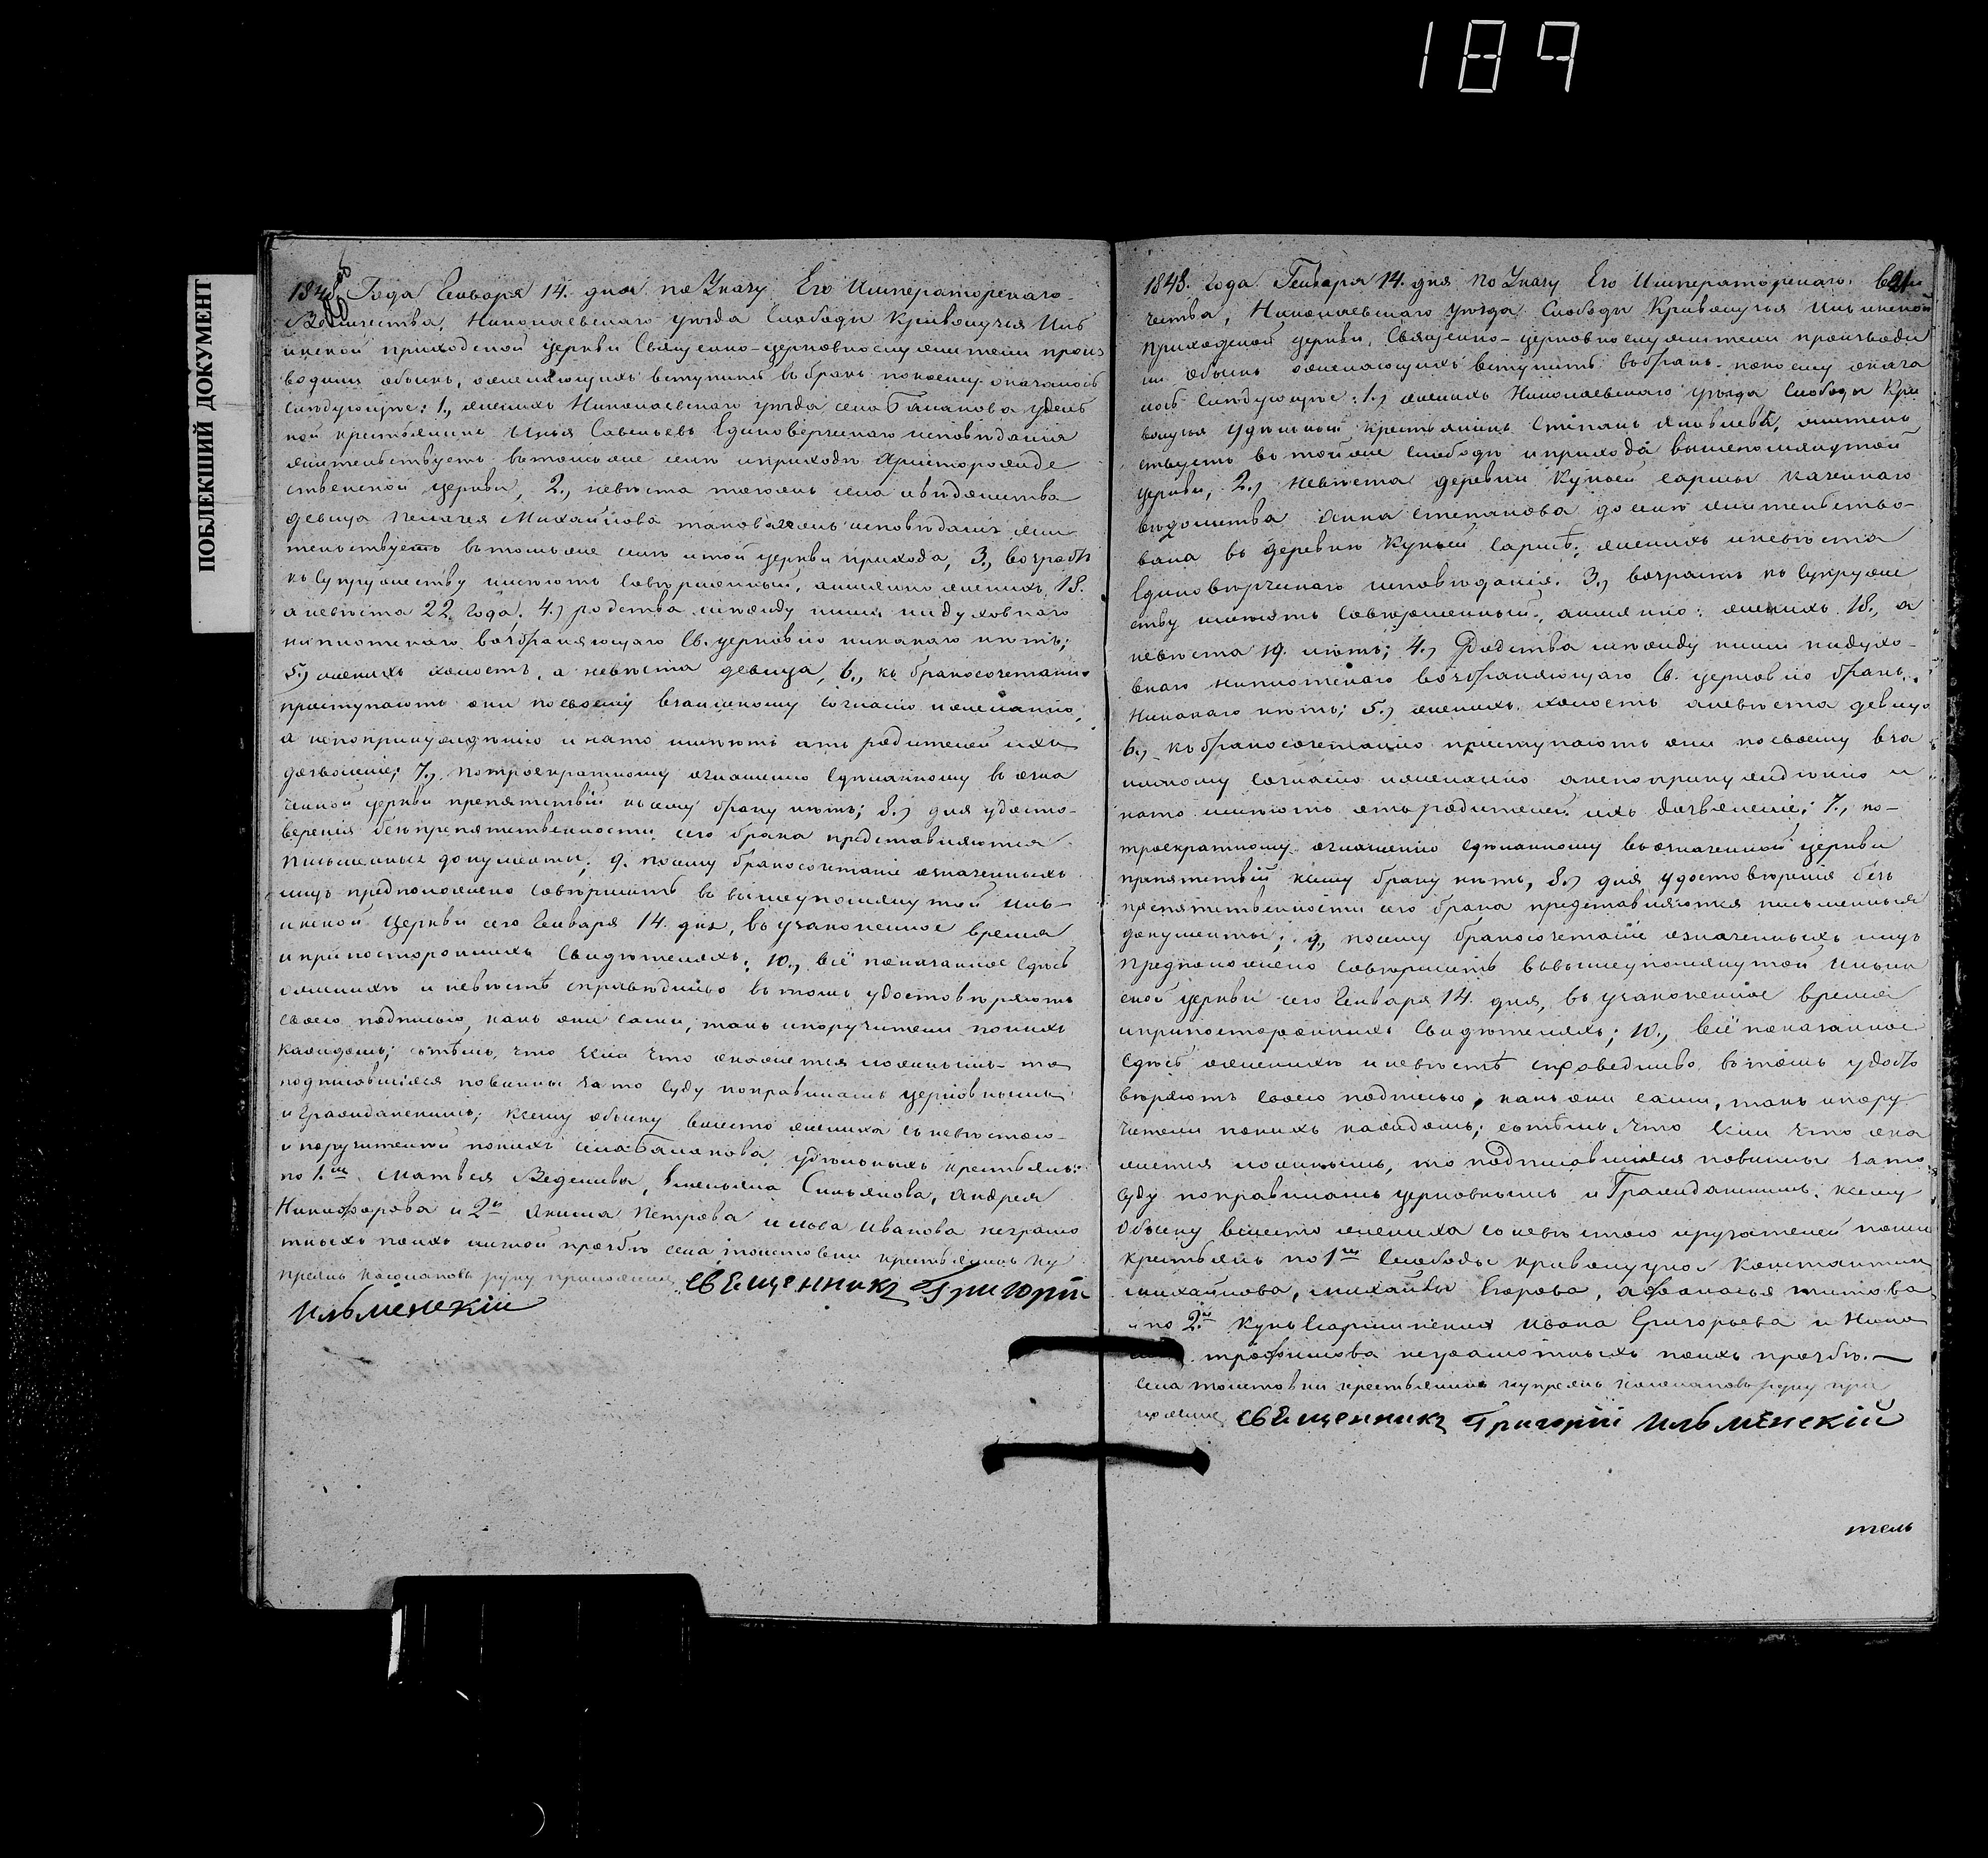 189
ПОБЛЕКШИЙ ДОКУМЕНТ
1848 Года Генваря 14. дня по Указу Его Императорскаго
Величества, Николаевскаго уѣзда Слободы Криволучья Иль
инской приходской церкви Священно-церковнослужители произ
водили обыскъ, желающихъ вступить въ бракъ по коему оказалось
Слѣдующее: 1., женихъ Николаевскаго уѣзда села Балакова удѣль
ной крестьянинъ Илья Савельевъ Единовѣрческаго исповѣданія
жительствуетъ въ томъ же селѣ и приходѣ Христорожде
ственской церкви, 2., невѣста тогожъ села и вѣдомства
девица Пелагея Михайлова таковагожъ исповѣданія жи
тельствуетъ въ томъ же селѣ и той церкви прихода, 3., возрастъ
къ Супружеству имѣютъ Совершенный, а именно женихъ 18.
а невѣста 22. года. 4., родства между ними ни духовнаго
ни плотскаго возбраняющаго Св. церковію никакаго нѣтъ;
5., женихъ холостъ, а невѣста девица, 6., къ бракосочетанію
приступаютъ они по своему взаимному Согласію и желанію,
а не по принужденію и на то имѣютъ отъ родителей ихъ
дозволеніе; 7., по троекратному оглашенію сдѣланному въ озна
ченной церкви препятствій къ сему браку нѣтъ; 8., для удосто-
веренія безпрепятственности сего брака представляются
письменныя документы; 9. посему бракосочетаніе означенныхъ
лицъ предположено совѣршить въ вышеупомянутой Иль-
инской Церкви сего Генваря 14. дня, въ узаконенное время
и при постороннихъ Свидѣтеляхъ; 10., всё показанное сдѣсь
о женихѣ и невѣстѣ справѣдливо въ томъ удостовѣряютъ
своею подписью, какъ они сами, такъ и поручители по нихъ
каждомъ; сътѣмъ, что если что окажется ложнымъ то
подписовшіяся повинны за то суду по правиламъ церковнымъ
и Гражданскимъ; къ сему обыску вместо жениха съ невѣстою
и поручителей по нихъ села Балакова удѣльныхъ крестьянъ:
по 1.мъ Матвея Веденива, Емельяна Сильянова, Андрея
Никифорова и 2й Якима Петрова и Льва Иванова неграмо
тныхъ по ихъ личной прозбѣ села Толстовки крестьянинъ Ку
пріянъ руку приложилъ Священникъ Григорій
Ильменскій
1848. года Генваря 14. дня по Указу Его Императорскаго Вели
21
чества, Николаевскаго уѣзда Слободы Криволучья Ильинской
приходской церкви, Священно-церковнослужители производи
ли обыскъ желающихъ вступить въ бракъ по коему оказа
лось Слѣдующее: 1., женихъ Николаевскаго уѣзда Слободы Кри
волучья удѣльный крестьянинъ Степанъ Яковлевъ, житель
ствуетъ въ той же слободѣ и прихода вышепомянутой
церкви, 2., невѣста деревни Купьей Сармы казеннаго
вѣдомства Анна Степанова до селѣ жительство-
вала въ деревнѣ Купьей Сармѣ; женихъ и невѣста
Единовѣрческаго исповѣданія. 3., возрастъ къ Супруже
ству имѣютъ совершенный, а именно: женихъ 18., а
невѣста 19. лѣтъ; 4., Родства между ними ни духо-
внаго ни плотскаго возбраняющаго Св. церковію бракъ
никакаго нѣтъ; 5., женихъ холостъ а невѣста девица
6., къ бракосочетанію приступаютъ они по своему вза
имному согласію и желанію а не по принужденію и
на то имѣютъ отъ родителей ихъ дозволеніе; 7., по-
троекратному оглашенію сдѣланному въ означенной церкви
препятствій к сему браку нѣтъ, 8., для удостовѣренія без
препятственности сего брака представляются письменныя
документы; 9., посему бракосочетаніе означенныхъ лицъ
предположено совѣршить въ вышеупомянутой Ильин
ской церкви сего Генваря 14. дня, въ узаконенное время
и при постороннихъ Свидѣтеляхъ; 10., всё показанное
сдѣсь о женихѣ и невѣстѣ справедливо въ томъ удосто
вѣряютъ своею подписью, какъ они сами, такъ и пору
чители по нихъ каждомъ; сътѣмъ что если что ока
жется ложнымъ, то подписовшіяся повинны за то
суду по правиламъ церковнымъ и Гражданскимъ. к сему
Обыску вместо жениха с невѣстою и
крестьянъ по 1мъ Слободы Криволучья Константина
Михайлова, Михайлы Егорова, Афанасья Титова
и по 2.й Купьсарминскихъ Ивана Григорьева и
Трофимова неграмотныхъ по ихъ прозбѣ.—
села Толстовки крестьянинъ Купріянъ руку при
ложилъ Священникъ Григорій Ильменскій
тель